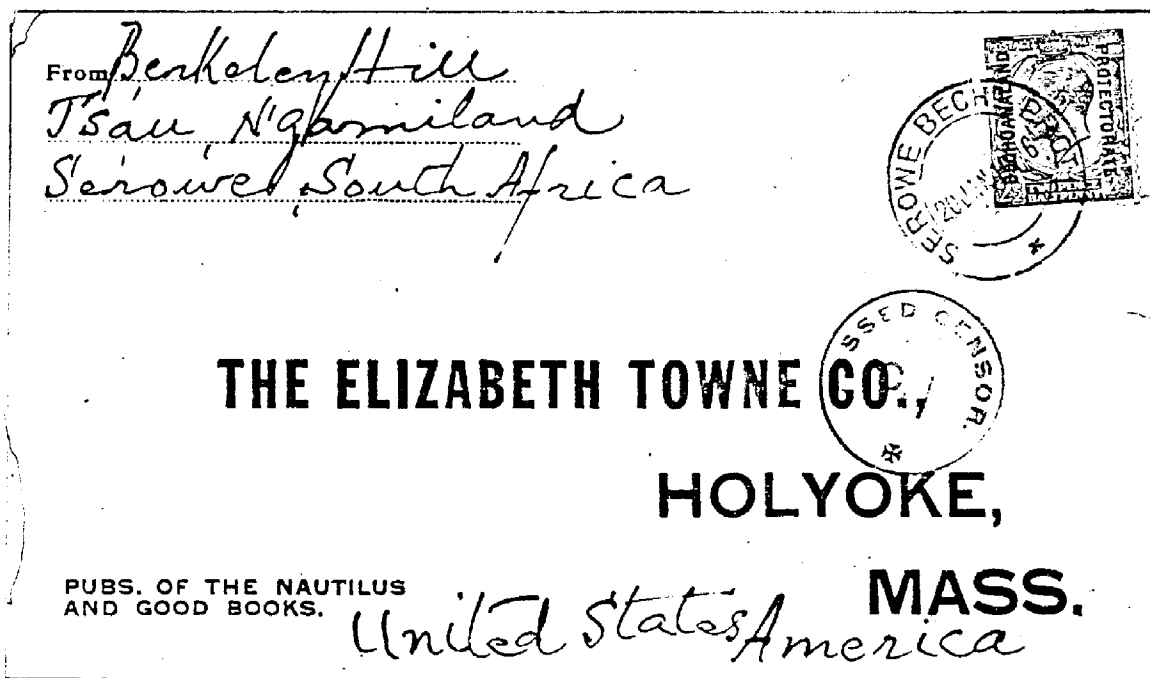 From Berkeley Hill
Tsau, N'gamiland
Serowe, South Africa
BECHUANALAND
PROTECTORATE
SEROWE BECH. PROT.
20 JAN
SSED CENSOR.
THE ELIZABETH TOWNE CO.,
HOLYOKE,
MASS.
PUBS. OF THE NAUTILUS
AND GOOD BOOKS.
United States America